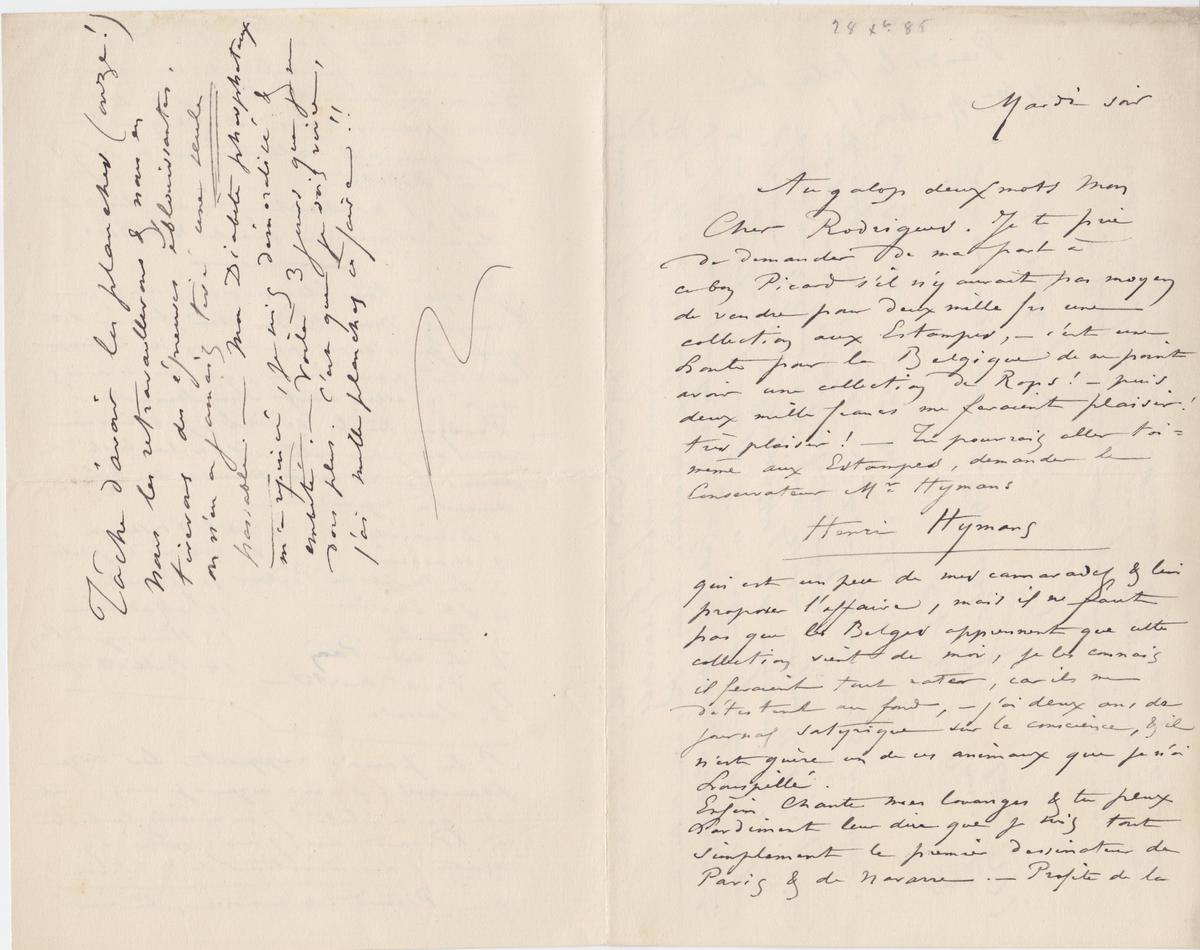 28 Xbr 85
Mardi soir
Au galop deux mots Mon
Cher Rodrigues. Je te prie
de demander de ma part à
ce bon Picard s'il n'y aurait pas moyen
de vendre pour deux mille frs une
collection aux Estampes, – c'est une
honte pour la Belgique de ne point
avoir une collection de Rops! – puis
deux mille francs me feraient plaisir!
très plaisir! — Tu pourrais aller toi=
même aux Estampes, demander le
Conservateur Mr Hymans
Henri Hymans
qui est un peu de mes camarades & lui
proposer l'affaire, mais il ne faut
pas que les Belges apprennent que cette
collection vient de moi, je les connais
il feraient tout rater, car ils me
détestent au fond, – j'ai deux ans de
journal satyrique sur la conscience, & il
n'est guère un de ces animaux que je n'ai
houspillé.
Enfin Chante mes louanges & tu peux
hardiment leur dire que je suis tout
simplement le premier dessinateur de
Paris & de Navarre. — Profite de la
Tâche d'avoir les planches (onze!)
nous les retravaillerons & nous en
tirerons des épreuves éblouissantes,
on n'en a jamais tiré une seule
passable. — Mon Diabète phosphateux
m'a repincé, je suis démoralisé &
embêté. — Voilà 3 jours que je ne
dors plus. C'est que je sois voire,
j'ai mille planches à faire!!